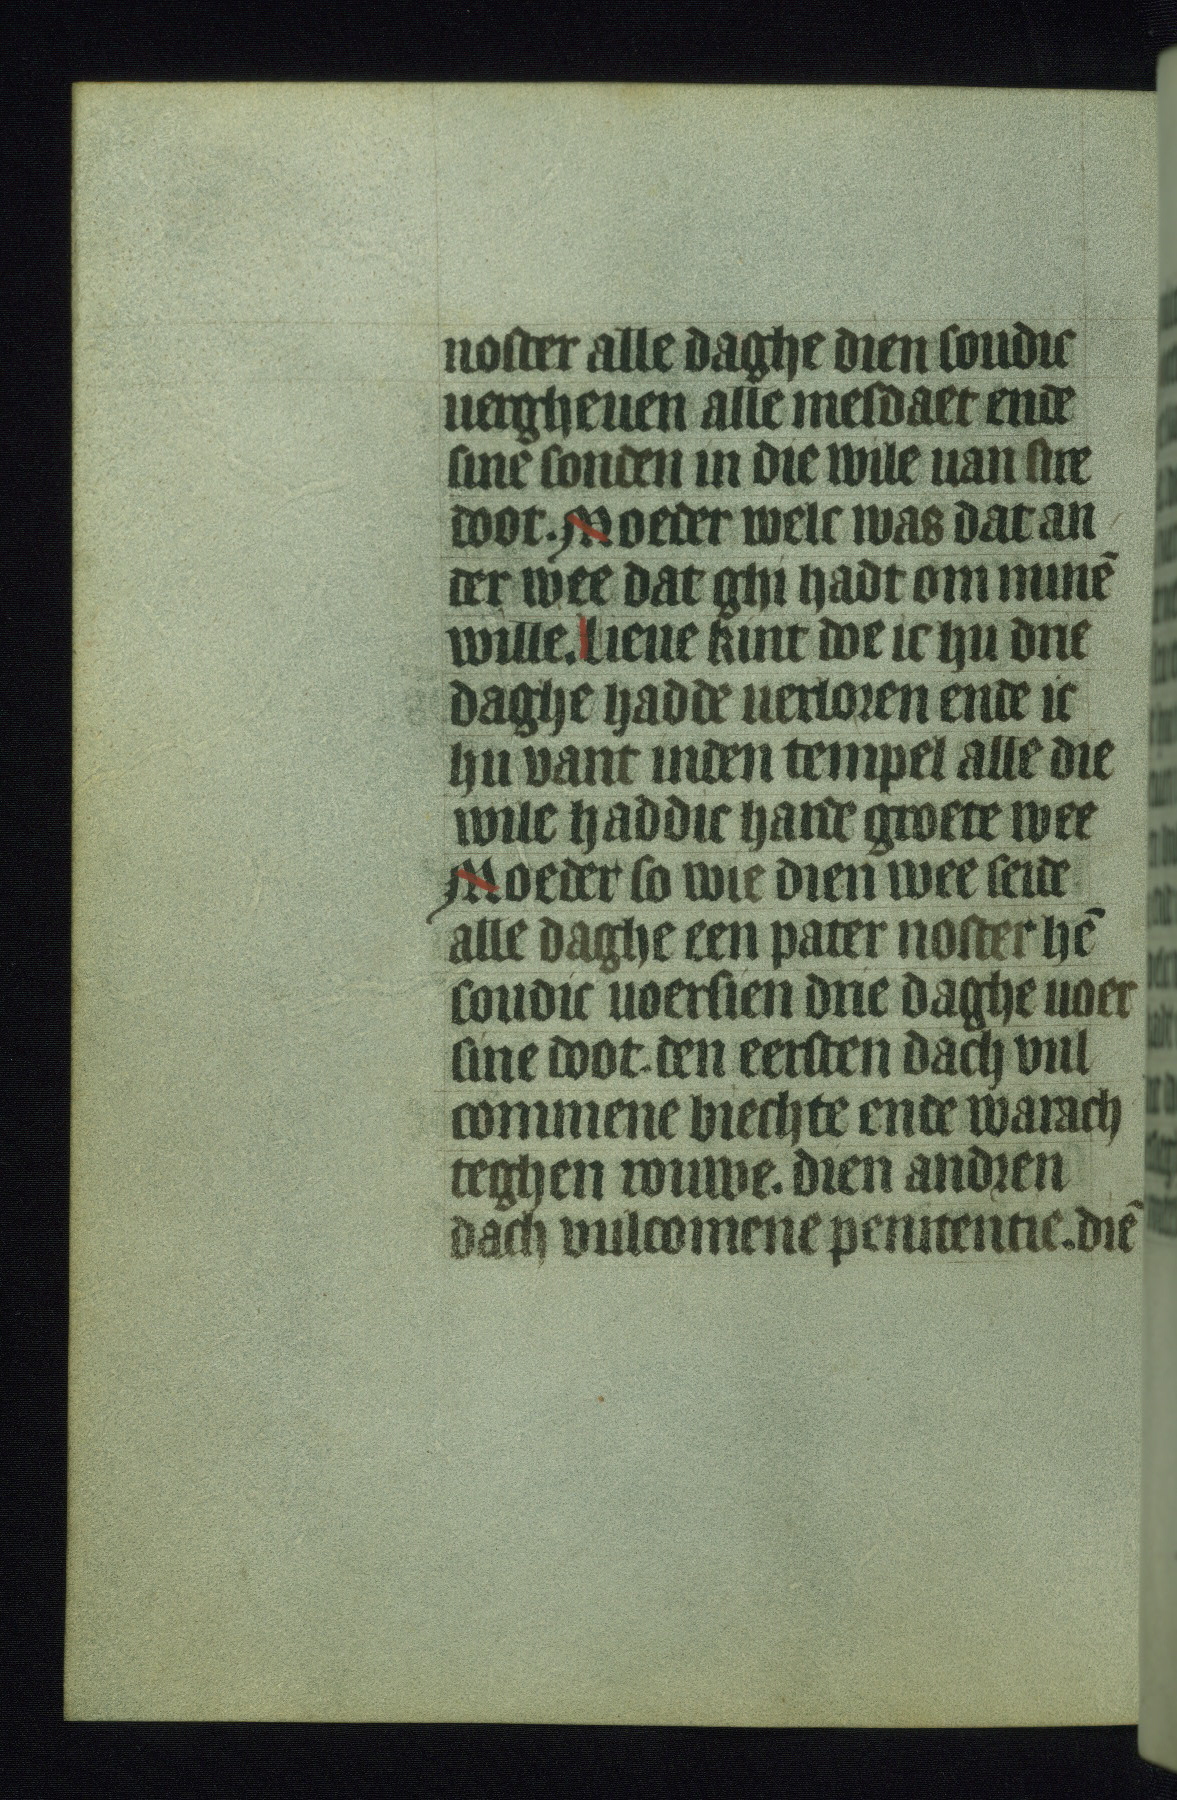 noster alle daghe dien soudic
uergheuen alle mesdaet ende
sinē sonden in die wile uan sire
doot. Moeder welc was dat an
der wee dat ghi hadt om minē
wille. lieue kint doe ic hu drie
daghe hadde uerloren ende ic
hu vant inden tempel alle die
wile haddic harde groete wee
Moeder so wie dien wee seide
alle daghe een pater noster hē
soudic uoersien drie daghe uoer
sine doot. den eersten dach vul
commene biechte ende warach
teghen rouwe. dien andren
dach vulcomene penitentie. diē